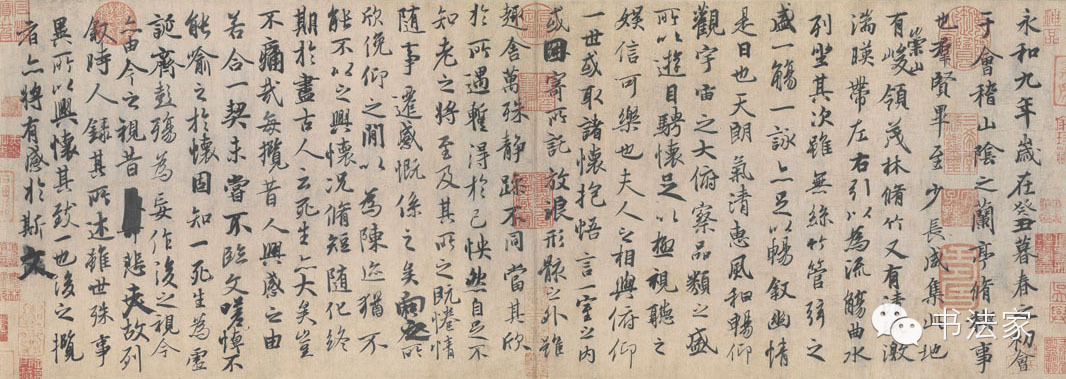 永和九年歲在癸丑暮春之初會
于會稽山陰之蘭亭脩稧事
也羣賢畢至少長咸集此地
有崇山峻領茂林脩竹又有清流激
湍暎帶左右引以為流觴曲水
列坐其次雖無絲竹管弦之
盛一觴一詠亦足以暢敘幽情
是日也天朗氣清惠風和暢仰
觀宇宙之大俯察品類之盛
所以遊目騁懷足以極視聽之
娛信可樂也夫人之相與俯仰
一世或取諸懷抱悟言一室之內
或因寄所託放浪形骸之外雖
趣舍萬殊靜躁不同當其欣
於所遇蹔得於己怏然自足不
知老之將至及其所之既惓情
隨事遷感慨係之矣向之所
欣俛仰之閒以為陳迹猶不
能不以之興懷況脩短隨化終
期於盡古人云死生亦大矣豈
不痛哉每攬昔人興感之由
若合一契未嘗不臨文嗟悼不
能喻之於懷固知一死生為虛
誕齊彭殤為妄作後之視今
亦由今之視昔悲夫故列
敘時人錄其所述雖世殊事
異所以興懷其致一也後之攬
者亦將有感於斯文
书法家